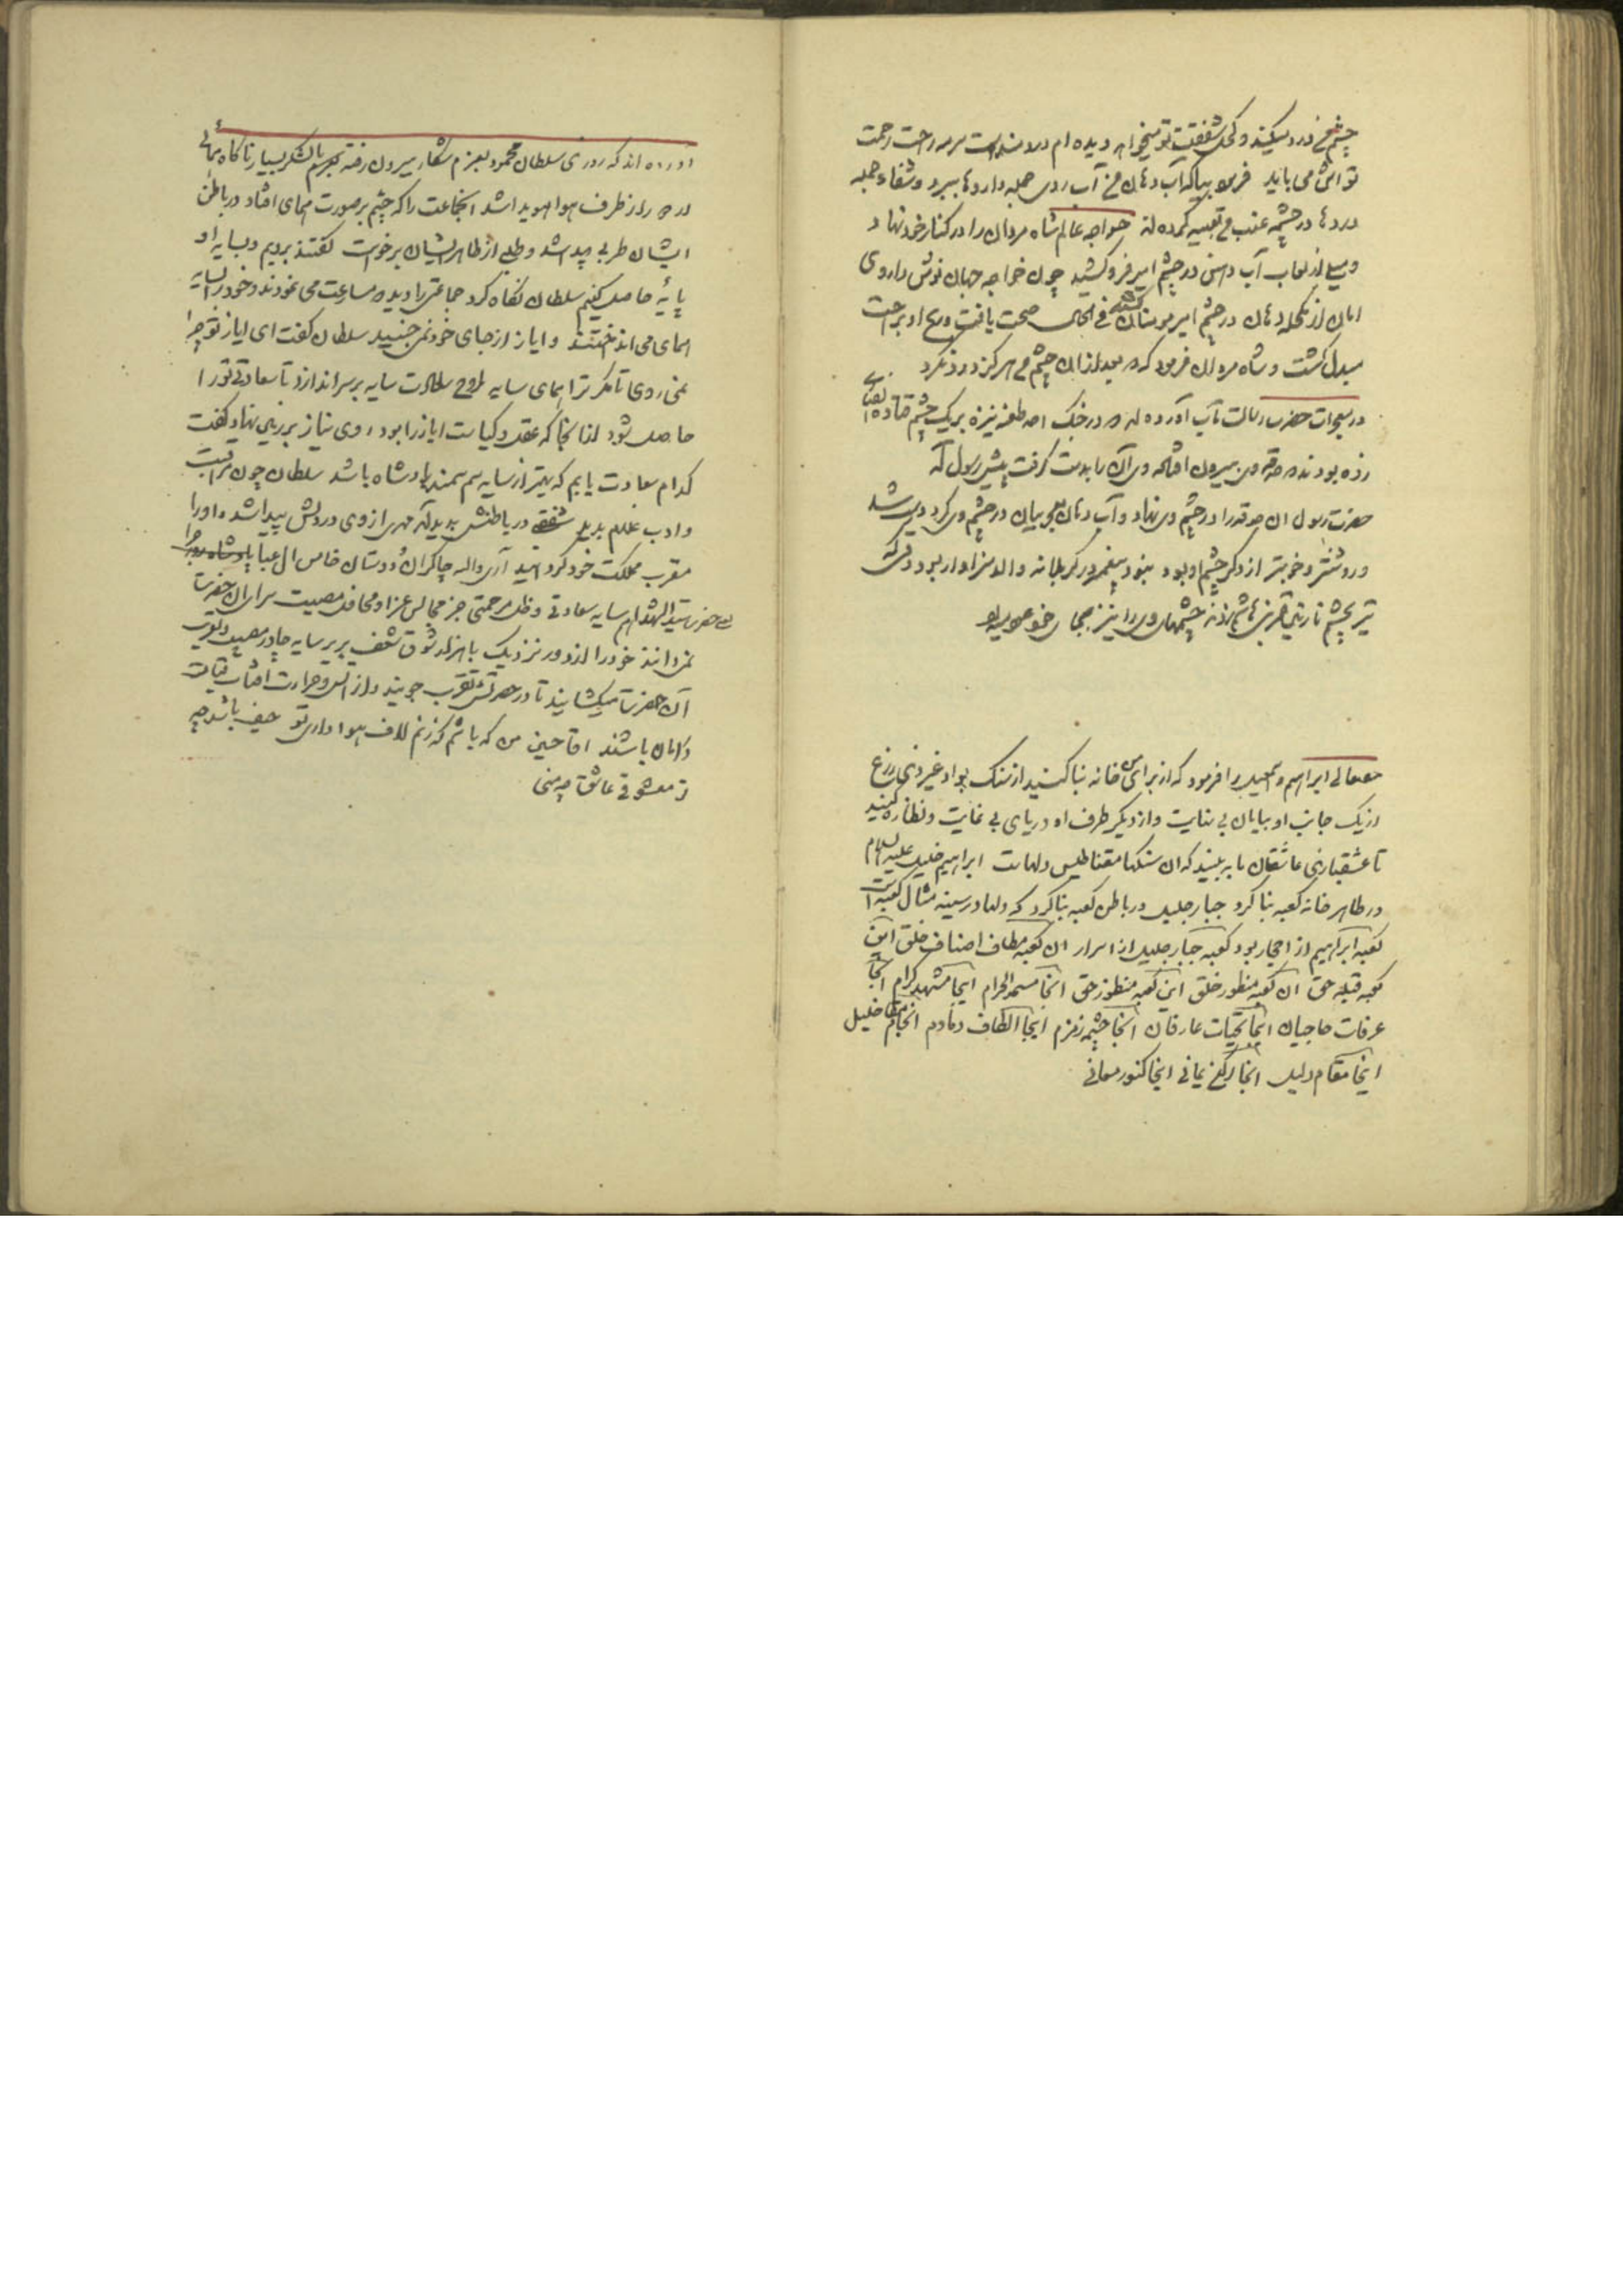 چشم من درد میکند و کحل شفقت تو میخواهد دیده ام دردمند است سرمه راحت رحمت
تواش می باید فرمود بیا که آب دهان من آب روی جمله داروها ببرد و شفاء جمله
دردها در چشمه عنب من تعبیه کرده اند خواجه عالم شاه مردان را در کنار خود نهاد
و میل از لعاب آب دهن در چشم امیر فرو کشید چون خواجه جهان نوش داروی
امان از مکحله دهان در چشم امیر مومنان کشید فی الحال صحت یافت و رنج او براحت
مبدل گشت و شاه مردان فرمود که بعد از آن چشم من هرگز درد نکرد
در معجزات حضرت رسالت مآب آورده اند که در جنگ احد طعن نیزه بر یک چشم قتاده
زده بودند حدقه وی بیرون افتاد وی آن را بدست گرفت پیش رسول آمد
حضرت رسول آن حدقه را در چشم وی نهاد و آب دهان معجز بیان در چشم وی کرد درست شد
و روشنتر و خوبتر از دیگر چشم او بود نبود پیغمبر در کربلا نه والد بزرگوار بود وقتی که
تیر بچشم نازنین قمر بنی هاشم زدند چشمهای وی را نیز بجای خود
حقتعالی ابراهیم و اسمعیل را فرمود که از برای من خانه بنا کنید از سنگ بواد غیر ذی زرع
از یک جانب او بیابان بی نهایت و از دیگر طرف او دریای بی غایت و نظاره کنید
تا عشقبازی عاشقان ما به بینید که آن سنگها مقناطیس دلهاست ابراهیم خلیل علیه السلام
در ظاهر خانه کعبه بنا کرد جبار جلیل در باطن کعبه بنا کرد که دلها در سینه مثال کعبه است
کعبه ابراهیم از احجار بود کعبه جبار جلیل از اسرار آن کعبه مطاف اصناف خلق این
کعبه قبله حق آن کعبه منظور خلق این کعبه منظور حق آنجا مسجد الحرام اینجا مشهد کرام آنجا
عرفات حاجیان اینجا تحیات عارفان آنجا چشمه زمزم اینجا الطاف دمادم آنجا مقام خلیل
اینجا مقام دلیل آنجا رکن یمانی اینجا کنوز معانی
آورده اند که روزی سلطان محمود بعزم شکار بیرون رفته بود با لشکر بسیار ناگاه همائی
از طرف هوا هویدا شد آنجماعت را که چشم بر صورت همای افتاد در باطن
ایشان طربی پیدا شد و طلبی از ظاهر ایشان برخواست گفتند برویم و بسایه او
پایهٔ حاصل کنیم سلطان نگاه کرد جماعتی را دید مسارعت می نمودند و خود را بسایه
همای می انداختند و ایاز از جای خود نمی جنبید سلطان گفت ای ایاز تو چرا
نمی روی تا مگر ترا همای سایه بر سر اندازد تا سعادتی تو را
حاصل شود از آنجا که عقل و کیاست ایاز را بود روی نیاز بر زمین نهاد گفت
کدام سعادت یابم که بهتر از سایه سم سمند پادشاه باشد سلطان چون
و ادب غلام بدید در باطنش پدید آمد مهری از وی در دلش پیدا شد و او را
مقرب مملکت خود گردانید آری والله چاکران و دوستان خامس آل عبا
حضرت سید الشهدا هم سایه سعادتی و ظل مرحمتی جز مجالس عزا و محافل مصیبت سرای آن حضرت
نمی دانند خود را از دور و نزدیک با هزار شوق و شعف بزیر سایه چادر
آن حضرت میکشانند تا در حضرتش تقرب جویند و از آتش و حرارت آفتاب قیامت
در امان باشند اما حین من که باشم که زنم لاف هواداری تو حیف باشد چه
تو معشوقی عاشق چه منی